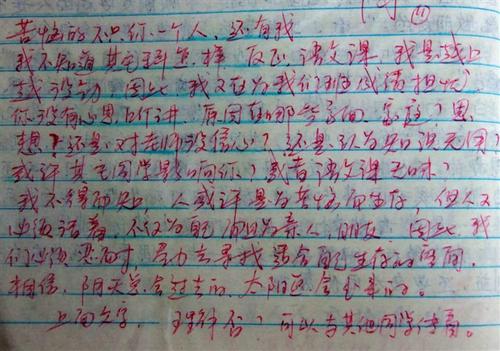 苦恼的不只你一个人，还有我
我不知道其它科怎样，反正，语文课，我是越上
越没劲，因此，我又在为我们班成绩担忧
你没有心思听讲，原因在哪些方面，家庭？思
想？还是对老师没信心？还是认为知识无用？
或许其它同学影响你？或者语文课无味？
我不得而知，人或许是为苦恼而生存，但人又
必须活着，不仅为自己而且为亲人，朋友，因此，我
们必须要面对，努力去寻找适合自己生存的空间，
相信，阴天总会过去的，太阳还会出来的。
上面文字，理解否？可以与其他同学传看。